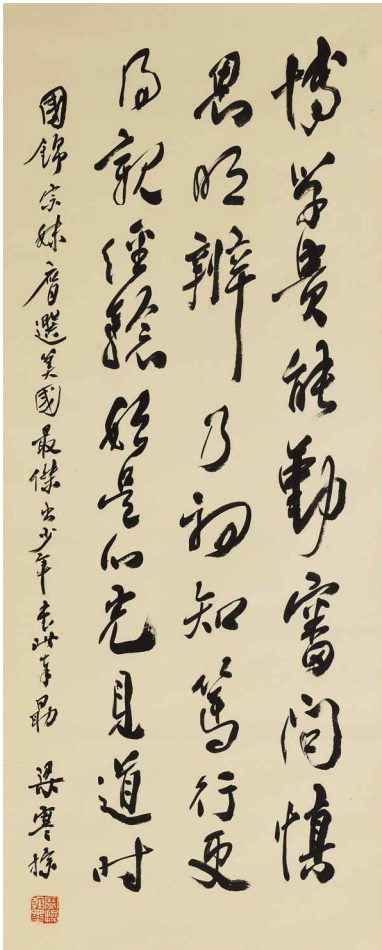 博學貴能勤審問慎
思明辨乃初知篤行更
得親經驗始是心光見道時
國錦宗妹膺選美國最傑出少年書此奉勖 梁寒操